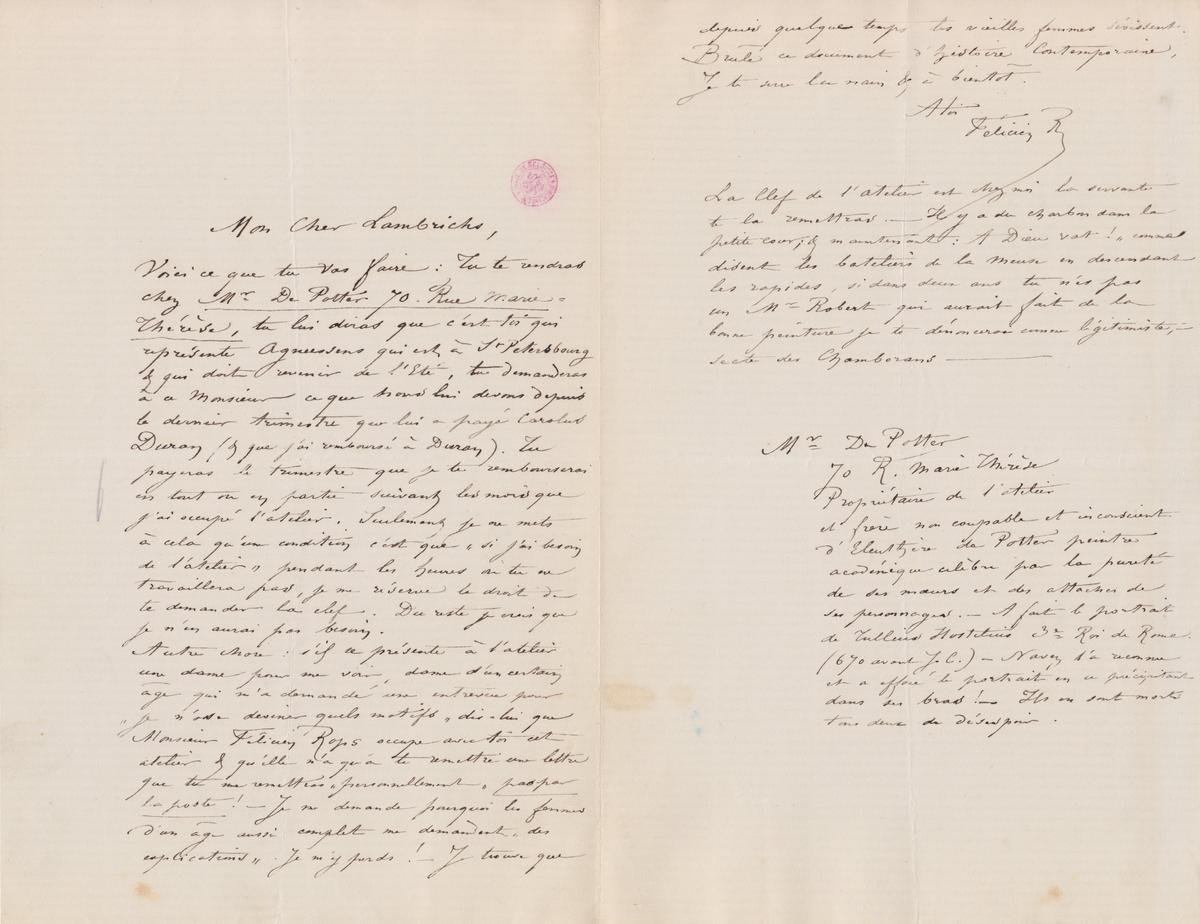 Mon Cher Lambrichs,
Voici ce que tu vas faire : Tu te rendras
chez Mr De Potter 70. Rue Marie=
Thérèse, tu lui diras que c'est toi qui
représente Agneessens qui est à St Petersbourg
& qui doit revenir de l'Eté, tu demanderas
à ce Monsieur ce que nous lui devons depuis
le dernier trimestre que lui a payé Carolus
Duran (& que j'ai remboursé à Duran). Tu
payeras le trimestre que je te rembourserai
en tout ou en partie suivant les mois que
j'ai occupé l'atelier. Seulement je ne mets
à cela qu'un condition c'est que „ si j'ai besoin
de l'atelier „ pendant les heures où tu ne
travaillera pas, je me réserve le droit de
te demander la clef. Du reste je crois que
je n'en aurai pas besoin.
Autre chose : s'il ce présente à l'atelier
une dame pour me voir, dame d'un certain
âge qui m'a demandé une entrevue pour
„ je n'ose deviner quels motifs „ dis-lui que
Monsieur Félicien Rops occupe avec toi cet
atelier & qu'elle n'a qu'à te remettre une lettre
que tu me remettras „ personnellement „ pas par
la poste ! — Je me demande pourquoi les femmes
d'un âge aussi complet me demandent „ des
explications „. Je m'y perds ! — Je trouve que
depuis quelque temps les vieilles femmes sévissent.
Brule ce document d'histoire Contemporaine,
Je te serre la main & à bientôt.
A toi
Félicien R
La Clef de l'atelier est chez moi la servante
te la remettras — Il y a du charbon dans la
petite cour, & maintenant : A Dieu vat ! „ comme
disent les bateliers de la Meuse en descendant
les rapides, si dans deux ans tu n'es pas
un Mr Robert qui aurait fait de la
bonne peinture je te dénoncerai comme légitimiste, —
secte des Chamborans —
Mr De Potter
70 R. Marie Thérèse
Propriétaire de l'atelier
et frère non coupable et inconscient
d'Eleuthère de Potter peintre
académique célèbre par la pureté
de ses mœurs et des attaches de
ses personnages. — A fait le portrait
de Tullius Hostilius 3e Roi de Rome.
(670 avant J.C.) — Navez l'a reconnu
et a effacé le portrait en ce précipitant
dans ses bras ! — Ils en sont morts
tous deux de désespoir.